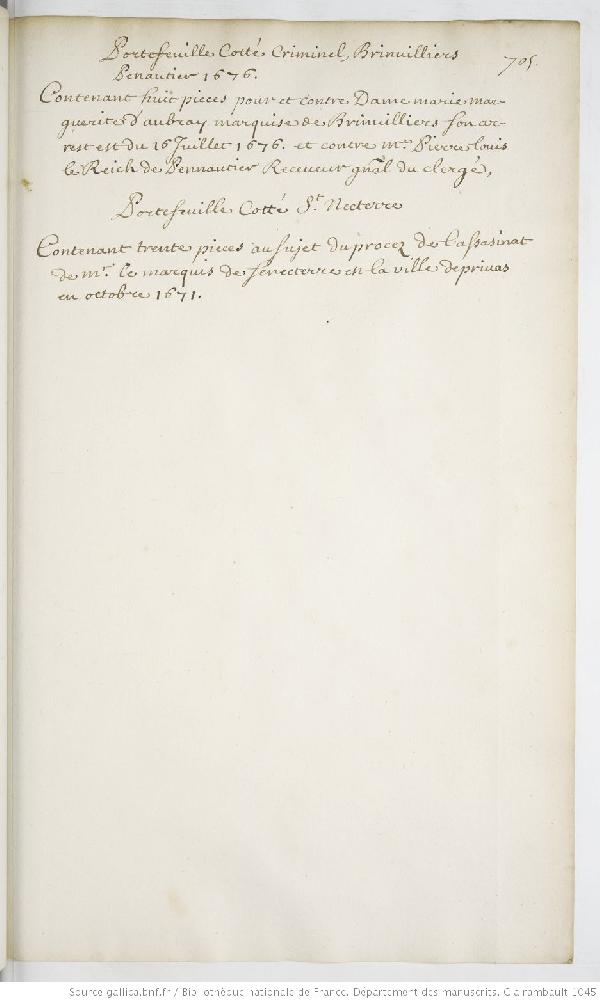 705.
Portefeuille Cotté Criminel, Brinvilliers
Penautier 1676.
Contenant huit pieces pour et contre Dame marie mar-
guerite d'aubray marquise de Brinvilliers son ar-
rest est du 16 Juillet 1676. et contre mr. Pierre louis
le Reich de Pennautier Receveur gnâl du clergé,
Portefeuille Cotté St. Necterre
Contenant trente pieces au sujet du procez de l'assasinat
de mr. le marquis de senecterre en la ville de privas
en octobre 1671.
Source gallica.bnf.fr / Bibliothèque nationale de France. Département des manuscrits. Clairambault 1045